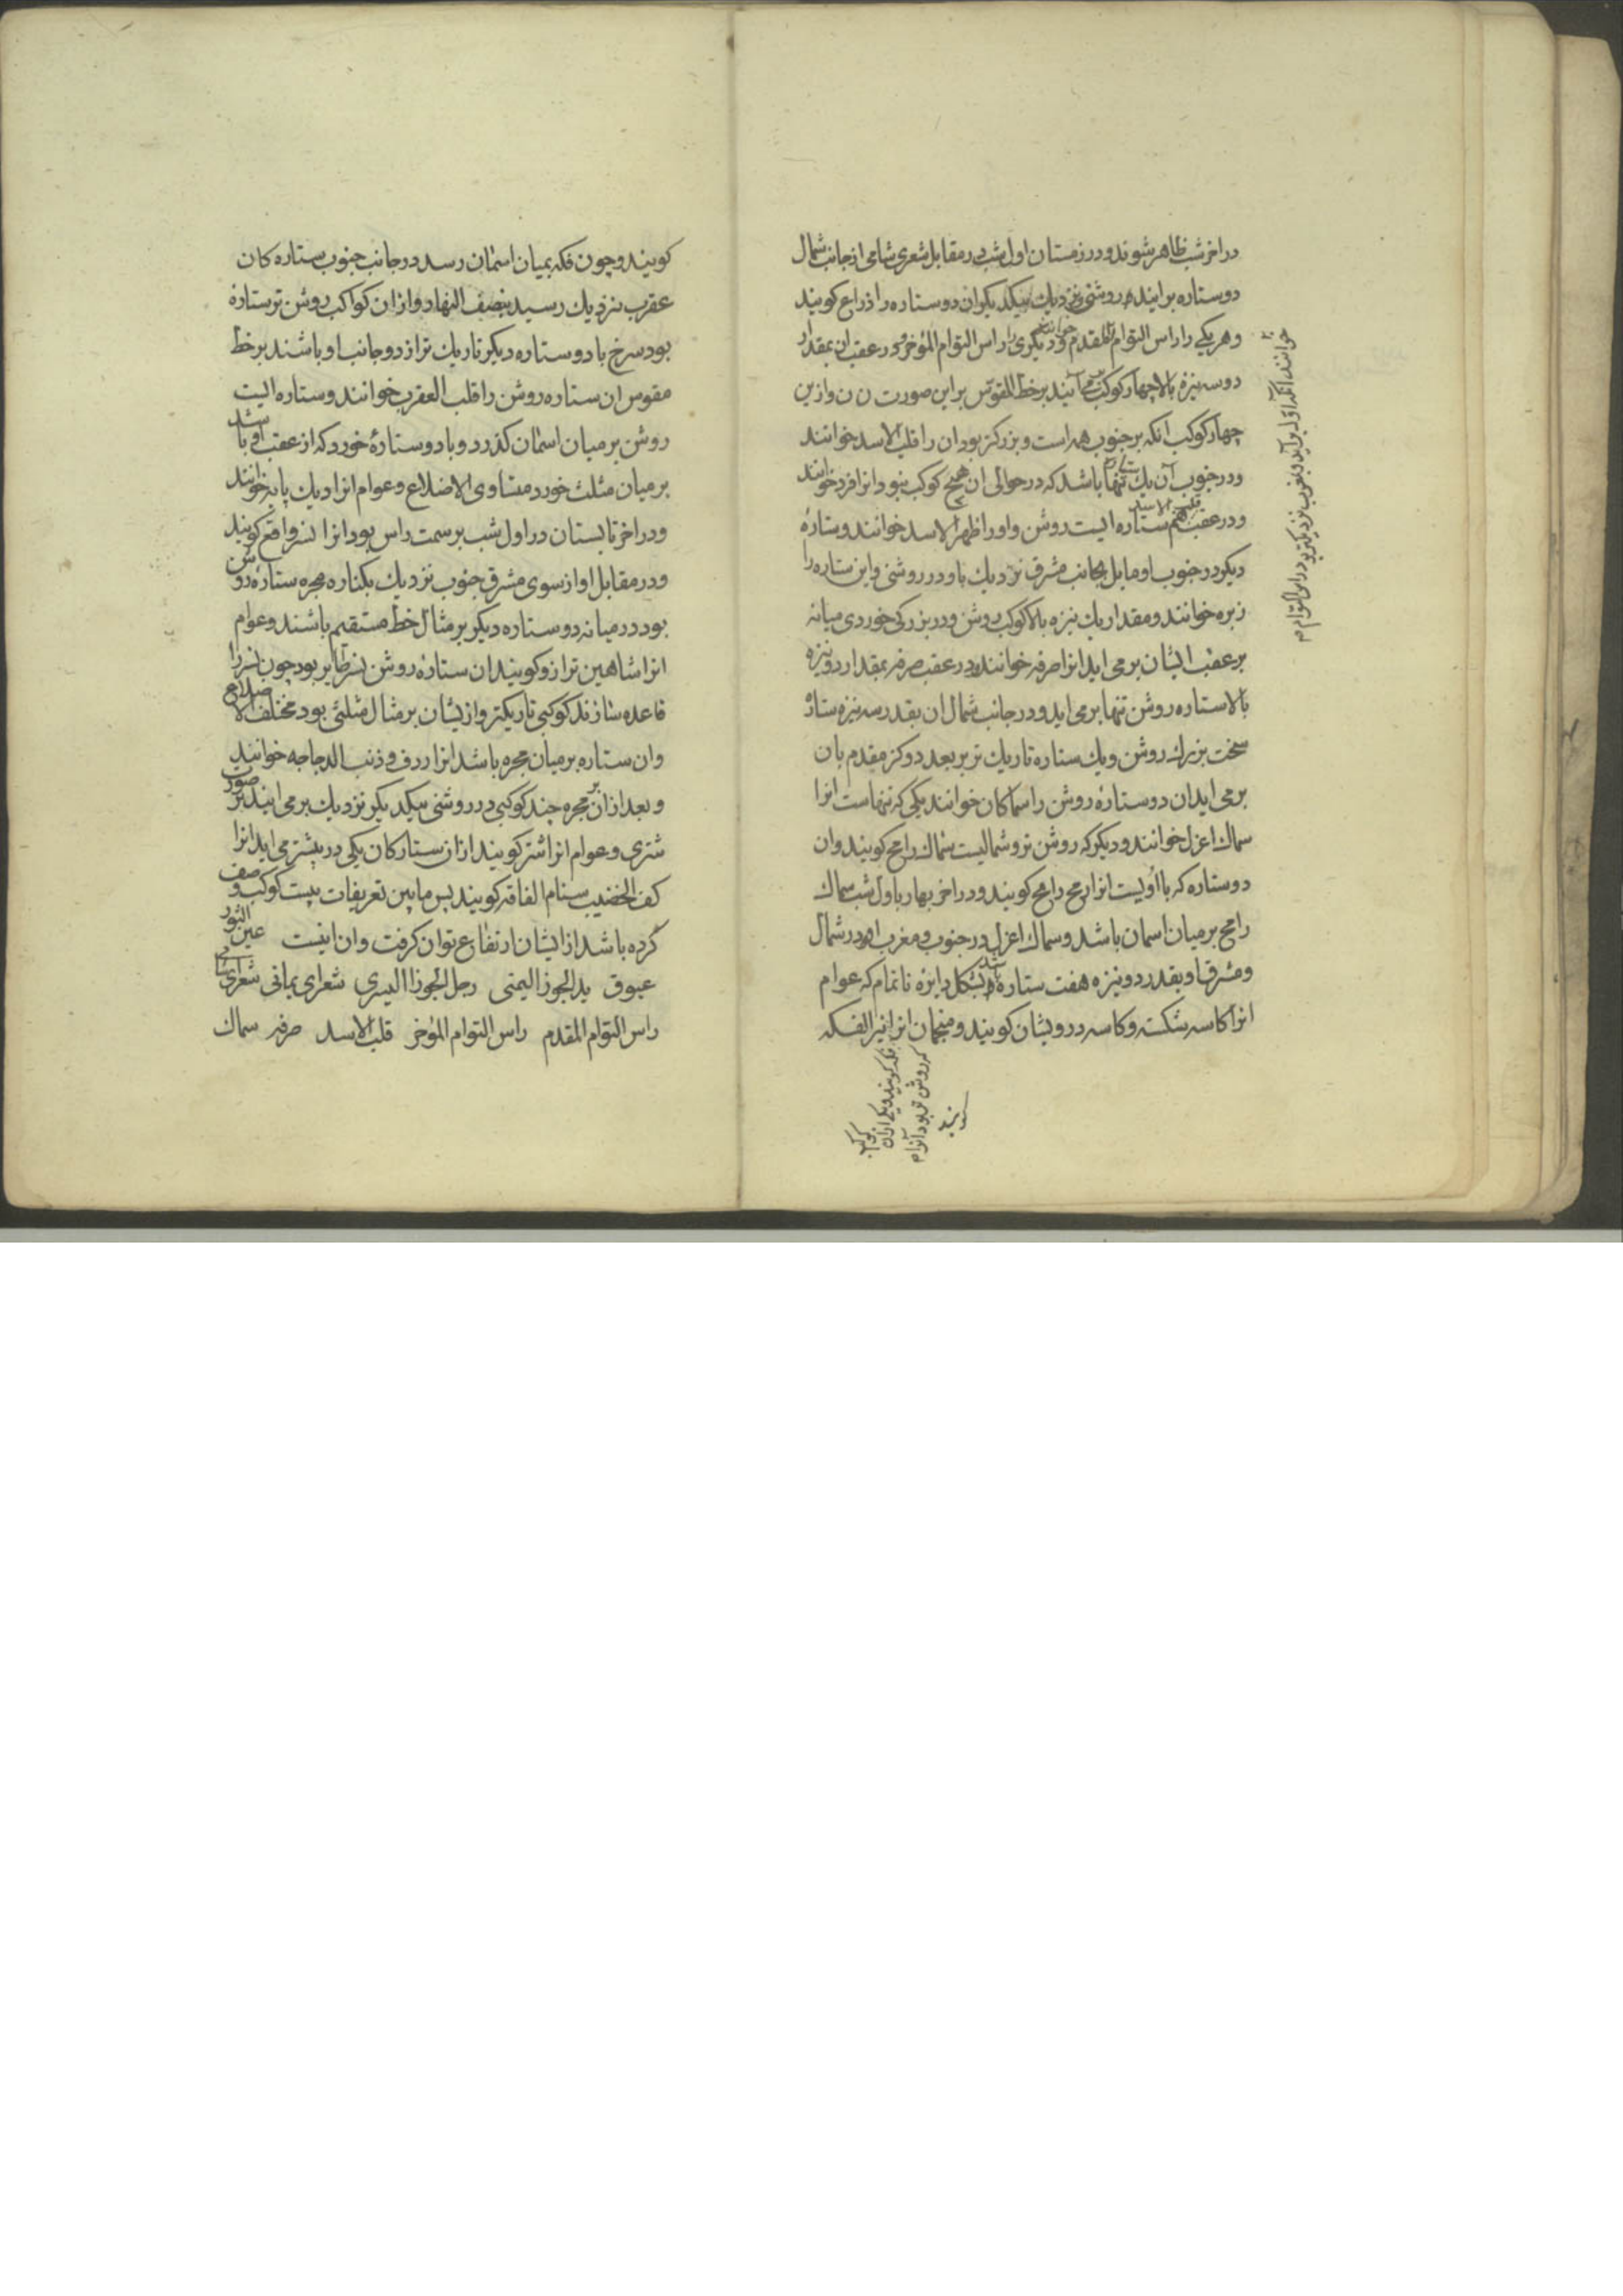 در اخر شب ظاهر شوند و در زمستان اول شب در مقابل شعری شامی از جانب شمال
دو ستاره برایند در روشنی نزدیك بیکدیکر ان دو ستاره را ذراع کویند
و هر یکی را راس التوام المقدم خوانند و دیکری را راس التوام المؤخر و در عقب ان بمقدار
دو سه نیزه بالا چهار کوکب می آیند بر خط المقوّس براین صورت ن ن و ازین
چهار کوکب انکه بر جنوب همه است و بزرکتر بود ان را قلب الاسد خوانند
و در جنوب آن یك ستاره تنها باشد که در حوالی ان هیچ کوکب نبود و انرا فرد خوانند
و در عقب قلب الاسد هم ستاره ایست روشن و او را ظهر الاسد خوانند و ستارۀ
دیکر در جنوب او مایل بجانب مشرق نزدیك باو در روشنی و این ستاره را
زبره خوانند و مقدار یك نیزه بالا کوکب روشن و در بزرکی خوردی میانه
بر عقب ایشان برمی اید انرا صرفه خوانند و در عقب صرفه بمقدار دو نیزه
بالا ستاره روشن تنها برمی اید و در جانب شمال ان بقدر سه نیزه ستاۀ
سخت بزرك روشن و یك ستاره تاریك تر بر بعد دو کز مقدم بان
برمی اید ان دو ستارۀ روشن را سماکان خوانند یکی که تنهاست انرا
سماك اعزل خوانند و دیکر که روشن تر و شمالیست سماك رامح کویند و ان
دو ستاره که با اویست انرا رمح رامح کویند و در اخر بهار باول شب سماك
رامح بر میان اسمان باشد و سماك اعزل در جنوب و مغرب او در شمال
و مشرق او بقدر دو نیزه هفت ستاره باشد بشکل دایره ناتمام که عوام
انرا کاسه شکسته و کاسه درویشان کویند و منجمان انرا نیر الفکه
خوانند آنکه اوّل برآید و بغرب نزدیکتر بود راس التوام م
فکه کویند و یکی ازان کوکب
که روشن تر بود آنرا م
کویند
کویند و چون فکه بمیان اسمان رسد در جانب جنوب ستاره کان
عقرب نزدیك رسید بنصف النهار و از ان کواکب روشن تر ستارۀ
بود سرخ با دو ستاره دیکر تاریك تر از دو جانب او باشند بر خط
مقوس ان ستاره روشن را قلب العقرب خوانند و ستاره ایست
روشن بر میان اسمان کذرد و با دو ستارۀ خورد که از عقب او باشد
بر میان مثلث خورد متساوی الاضلاع و عوام انرا دیك پایه خوانند
و در اخر تابستان در اول شب بر سمت راس بود انرا نسر واقع کویند
و در مقابل او از سوی مشرق جنوب نزدیك بکناره مجره ستارۀ روشن
بود در میانه دو ستاره دیکر بر مثال خط مستقیم باشند و عوام
انرا شاهین ترازو کویند ان ستارۀ روشن نسر طایر بود چون نسر را
قاعده سازند کوکبی تاریکتر و از یشان بر مثال مثلثی بود مختلف الاضلاع
و ان ستاره بر میان مجره باشد انرا ردف و ذنب الدجاجه خوانند
و بعد ازان بر مجره چند کوکبی در روشنی بیکدیکر نزدیك برمی ایند بر صورت
شتری و عوام انرا اشتر کویند از ان ستارکان یکی در پیشتر می اید انرا
کف الخضیب سنام الناقه کویند پس مابین تعریفات بیست کوکب وصف
کرده باشد از ایشان ارتفاع توان کرفت و ان اینست عین الثور
عیوق ید الجوزا الیمنی رجل الجوزا الیسری شعرای یمانی شعرای شامی
راس التوام المقدم راس التوام المؤخر قلب الاسد صرفه سماك